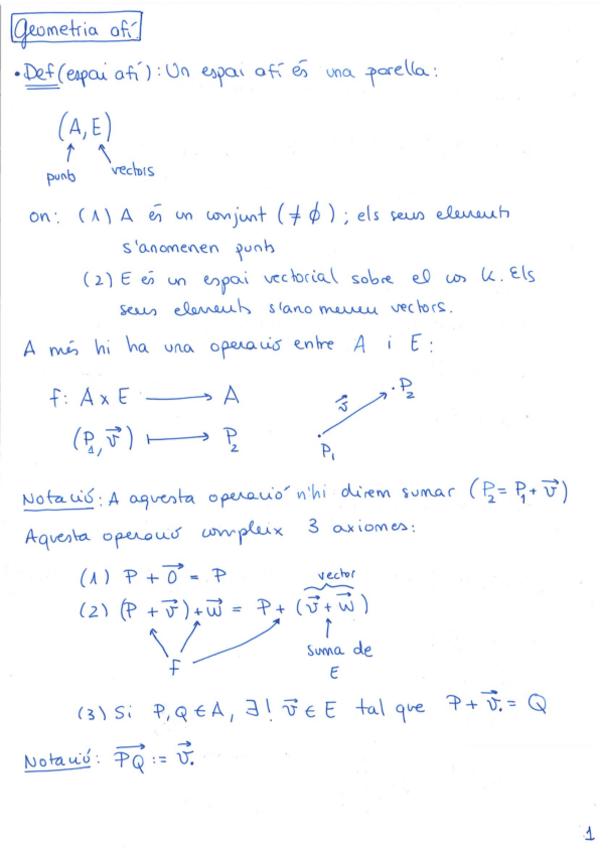 Geometria afí
• Def (espai afí): Un espai afí és una parella:
(A, E)
punts
vectors
on: (1) A és un conjunt (≠ ∅); els seus elements
s'anomenen punts
(2) E és un espai vectorial sobre el cos K. Els
seus elements s'anomenen vectors.
A més hi ha una operació entre A i E:
f: A x E ⟶ A
(P₁, v⃗) ⟼ P₂
v⃗
P₂
P₁
Notació: A aquesta operació n'hi direm sumar (P₂ = P₁ + v⃗)
Aquesta operació compleix 3 axiomes:
(1) P + 0⃗ = P
vector
(2) (P + v⃗) + w⃗ = P + (v⃗ + w⃗)
f
suma de
E
(3) Si P, Q ∈ A, ∃! v⃗ ∈ E tal que P + v⃗. = Q
Notació: PQ⃗ := v⃗.
1